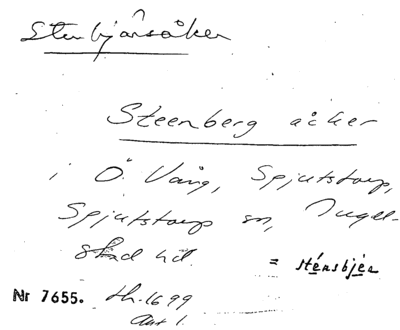 Stenbjärsåker
Steenberg åcker
i Ö. Vång, Spjutstorp,
Spjutstorp sn, Ingel-
stad hd.
= sténsbjéa
Nr 7655. Lh. 1699
Akt 1.